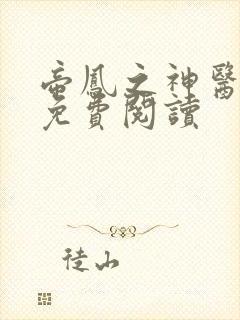 帝凰之神醫
免費閱讀
徒山